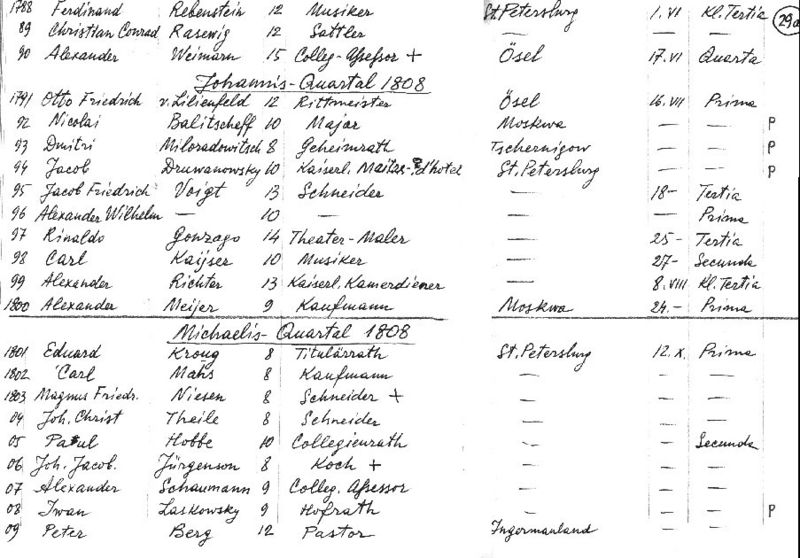 1788 Ferdinand Rebenstein 12 Musiker St. Petersburg 1. VI Kl. Tertia 29a
89 Christian Conrad Rasewig 12 Sattler — — —
90 Alexander Weimarn 15 Colleg-Assessor + Ösel 17. VI Quarta
Johannis-Quartal 1808
1791 Otto Friedrich v. Lilienfeld 12 Rittmeister Ösel 16. VII Prima
92 Nicolai Balitscheff 10 Major Moskwa — — P
93 Dmitri Miloradowitsch 8 Geheimrath Tschernigow — — P
94 Jacob Druwanowsky 10 Kaiserl. Maitre-d'hotel St. Petersburg — — P
95 Jacob Friedrich Voigt 13 Schneider — 18 — Tertia
96 Alexander Wilhelm — 10 — — — Prima
97 Rinaldo Gonzago 14 Theater-Maler — 25 - Tertia
98 Carl Kaijser 10 Musiker — 27 - Secunda
99 Alexander Richter 13 Kaiserl. Kamerdiener — 8. VIII Kl. Tertia
1800 Alexander Meijer 9 Kaufmann Moskwa 24. - Prima
Michaelis-Quartal 1808
1801 Eduard Kroug 8 Titulärrath St. Petersburg 12. X. Prima
1802 Carl Mahs 8 Kaufmann — — —
1803 Magnus Friedr. Niesen 8 Schneider + — — —
04 Joh. Christ Theile 8 Schneider — — —
05 Paul Hobbe 10 Collegienrath — — Secunda
06 Joh. Jacob. Jürgenson 8 Koch + — — —
07 Alexander Schaumann 9 Colleg. Assessor — — —
08 Iwan Laskowsky 9 Hofrath — — — P
09 Peter Berg 12 Pastor Ingermanland — —